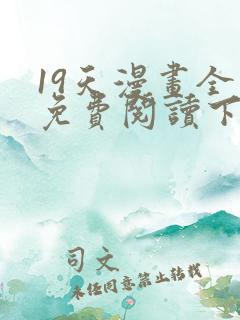 19天漫畫全
免費閱讀下
司文
未经同意禁止转载